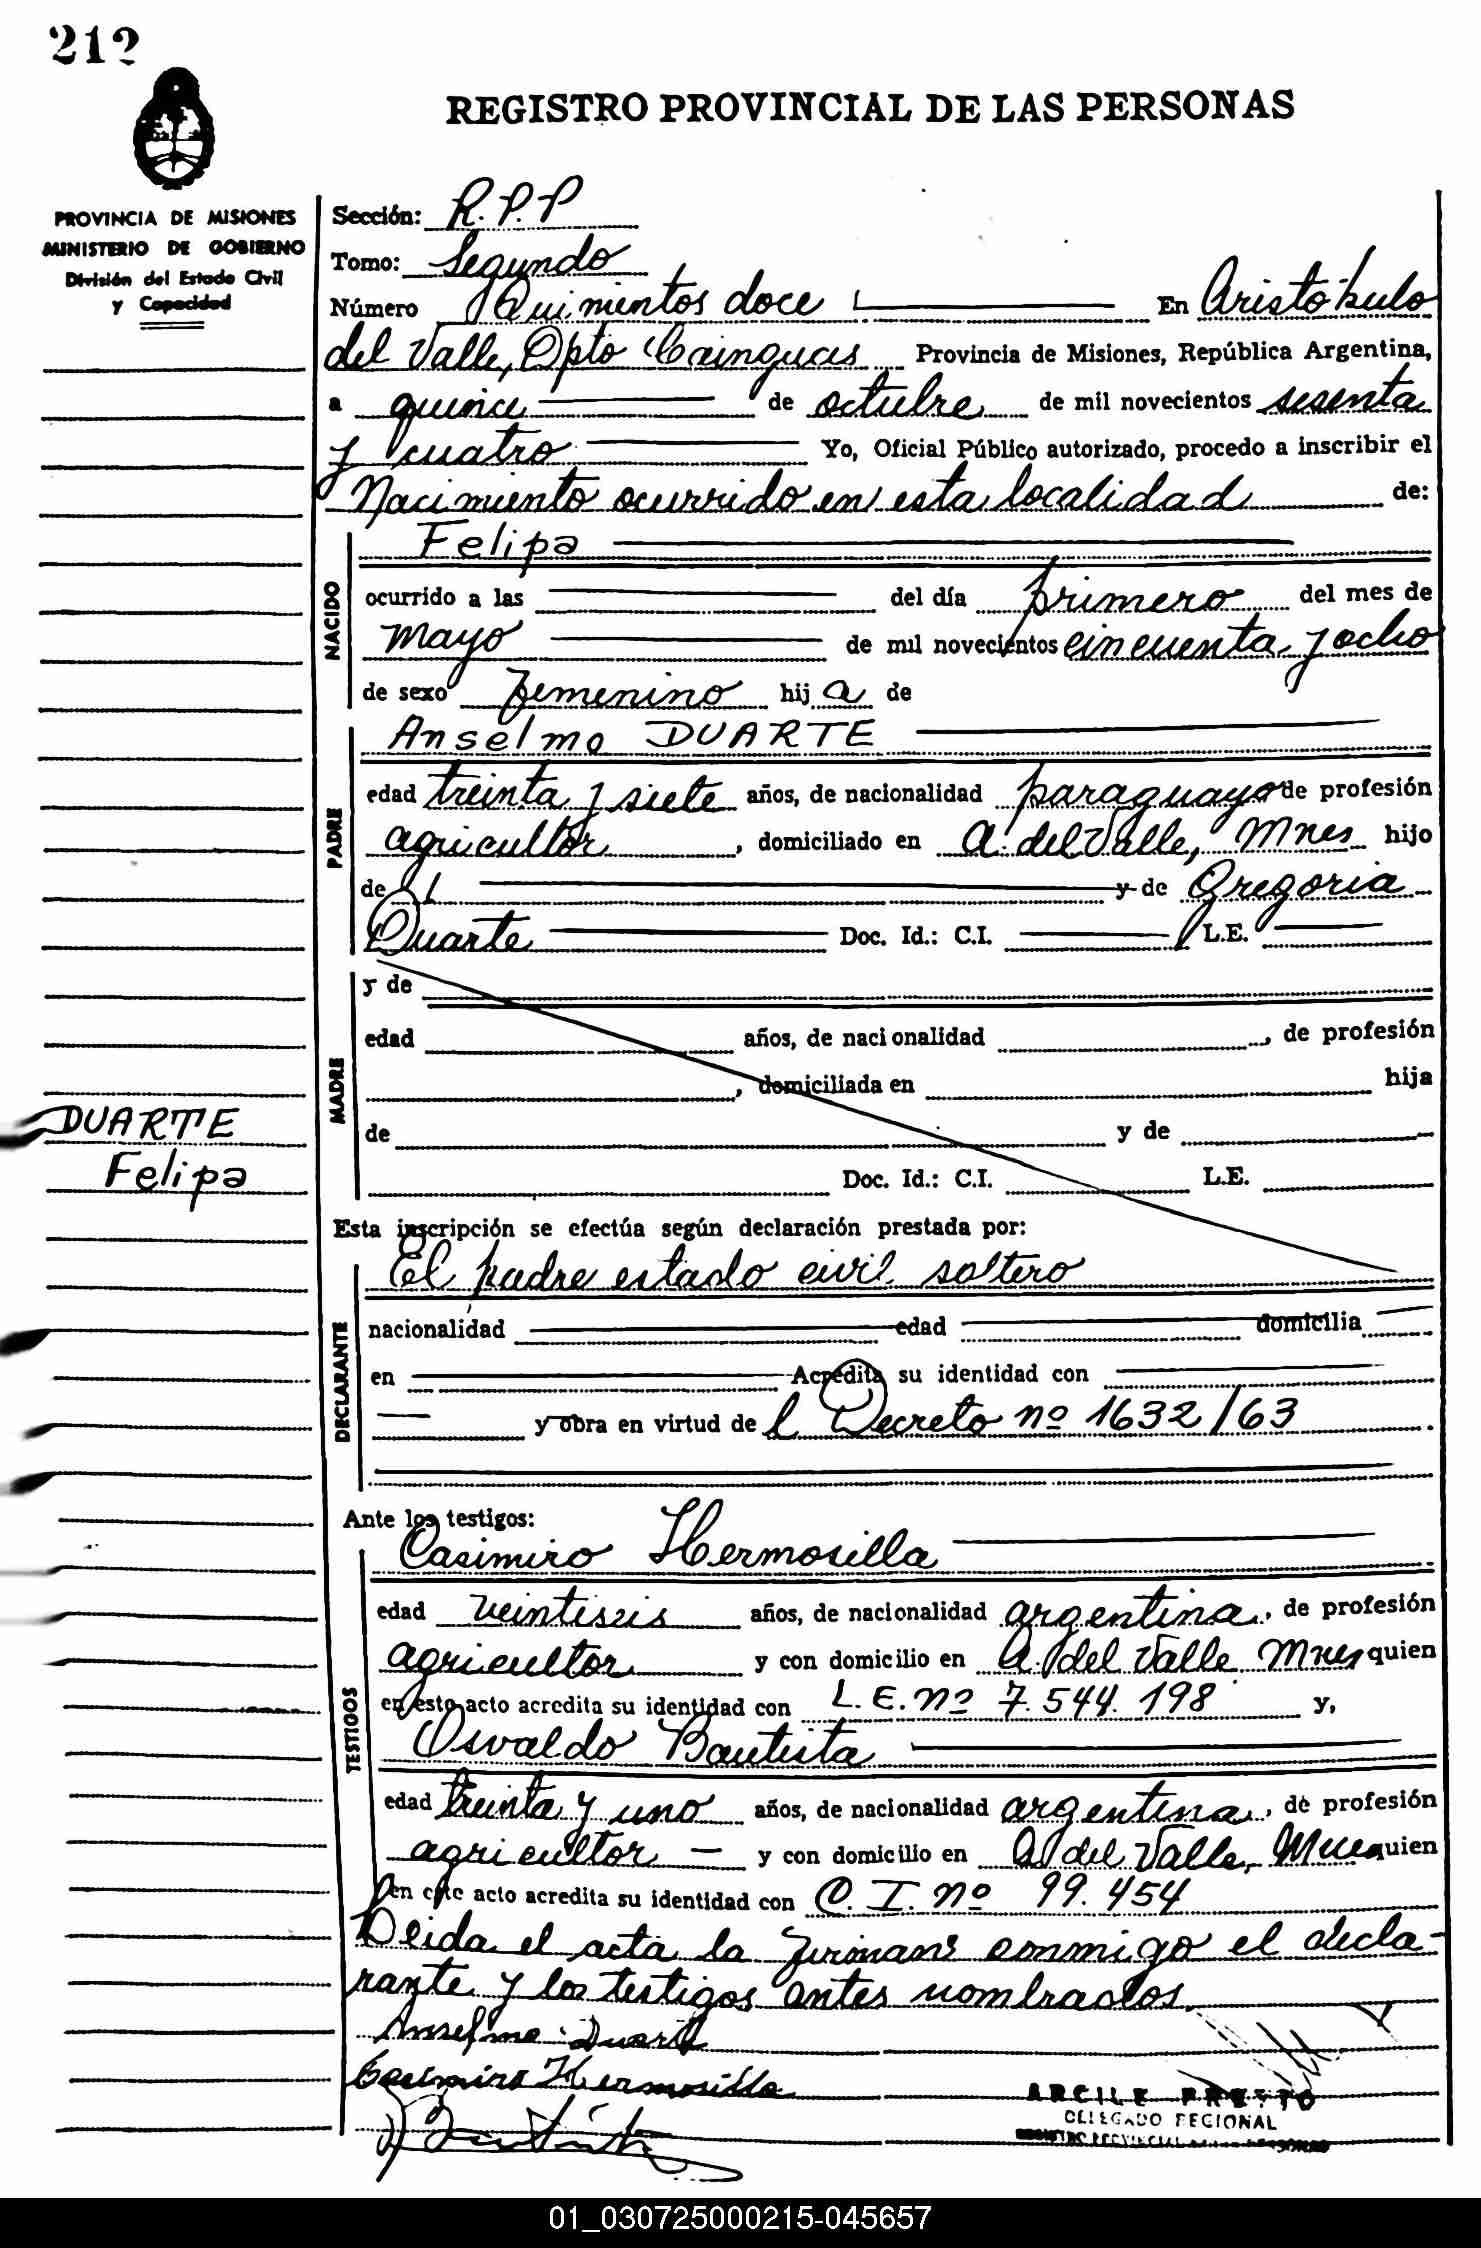 212
REGISTRO PROVINCIAL DE LAS PERSONAS
PROVINCIA DE MISIONES
MINISTERIO DE GOBIERNO
División del Estado Civil
y Capacidad
Sección: R.P.P
Tomo: Segundo
Número Quinientos doce En Aristóbulo
del Valle, Dpto Cainguas Provincia de Misiones, República Argentina,
a quince de octubre de mil novecientos sesenta
y cuatro Yo, Oficial Público autorizado, procedo a inscribir el
Nacimiento ocurrido en esta localidad de:
NACIDO
Felipa
ocurrido a las del día primero del mes de
mayo de mil novecientos cincuenta y ocho
de sexo femenino hija de
PADRE
Anselmo DUARTE
edad treinta y siete años, de nacionalidad paraguayo de profesión
agricultor, domiciliado en A. del Valle, Mnes hijo
de y de Gregoria
Duarte Doc. Id.: C.I. L.E.
MADRE
y de
edad años, de nacionalidad , de profesión
, domiciliada en hija
de y de
Doc. Id.: C.I. L.E.
DUARTE
Felipa
Esta inscripción se efectúa según declaración prestada por:
DECLARANTE
El padre estado civil soltero
nacionalidad edad domicilia
en Acredita su identidad con
y obra en virtud del Decreto nº 1632/63
Ante los testigos:
TESTIGOS
Casimiro Hermosilla
edad veintiseis años, de nacionalidad argentina, de profesión
agricultor y con domicilio en A. del Valle Mnes quien
en esto acto acredita su identidad con L.E. nº 7.544.198 y,
Osvaldo Bautista
edad treinta y uno años, de nacionalidad argentina, de profesión
agricultor — y con domicilio en A del Valle, Mnes quien
en este acto acredita su identidad con C.I. nº 99.454
Leida el acta la firman conmigo el decla-
rante y los testigos antes nombrados.
Anselmo Duarte
Casimiro Hermosilla
DELEGADO REGIONAL
01_030725000215-045657